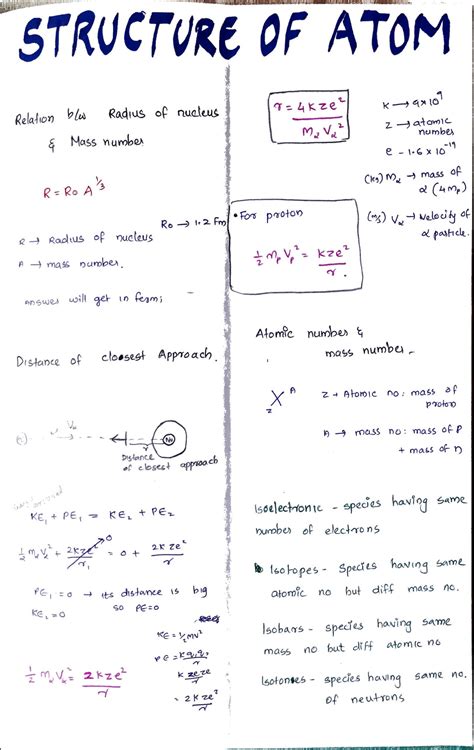 STRUCTURE OF ATOM
Relation b/w Radius of nucleus
& Mass number
R = R₀ A^1/3
R₀ → 1.2 Fm
R → Radius of nucleus
A → mass number.
answer will get in ferm;
Distance of closest Approach.
Vα
N₀
r
Distance
of closest approach
KE₁ + PE₁ = KE₂ + PE₂
1/2 mαVα² + 2KZe²/r₁ = 0 + 2KZe²/r
0
PE₁ = 0 → its distance is big
so PE = 0
KE₂ = 0
KE = 1/2 mv²
PE = Kq₁q₂/r
KZe²
= 2KZe²/r
1/2 mαVα² = 2KZe²/r
r = 4KZe²/MαVα²
K → 9 × 10⁹
Z → atomic
number
e - 1.6 × 10⁻¹⁹
(kg) Mα → mass of
α (4mp)
(m/s) Vα → velocity of
α particle.
• For proton
1/2 mpVp² = KZe²/r.
Atomic number &
mass number -
zX^A
Z → Atomic no: mass of
proton
A → mass no: mass of P
+ mass of n
Isoelectronic - species having same
number of electrons
Isotopes - species having same
atomic no but diff mass no.
Isobars - species having same
mass no but diff atomic no
Isotones - species having same no.
of neutrons